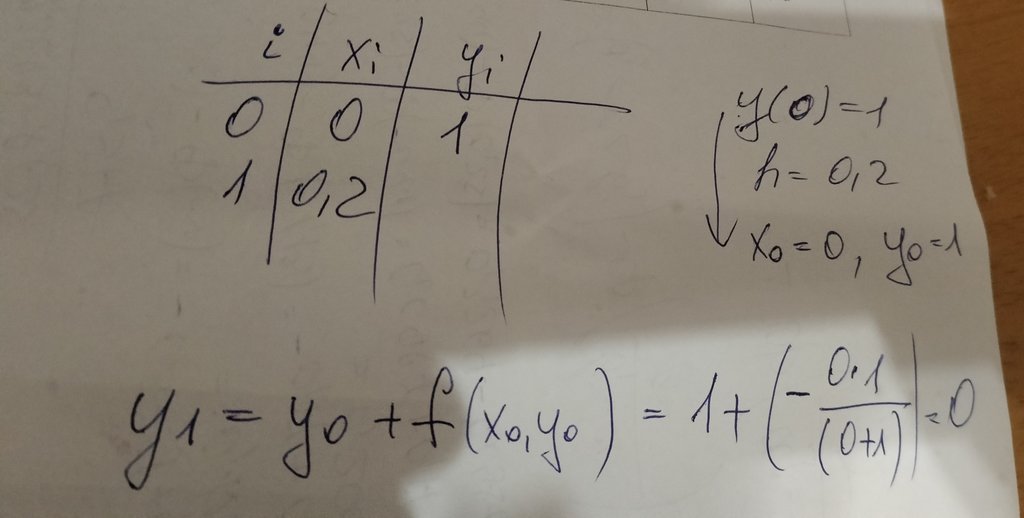 i xi yi
0 0 1
1 0,2
y(0)=1
h=0,2
x0=0, y0=1
y1=y0+f(x0,y0)=1+(-0·1/(0+1))=0